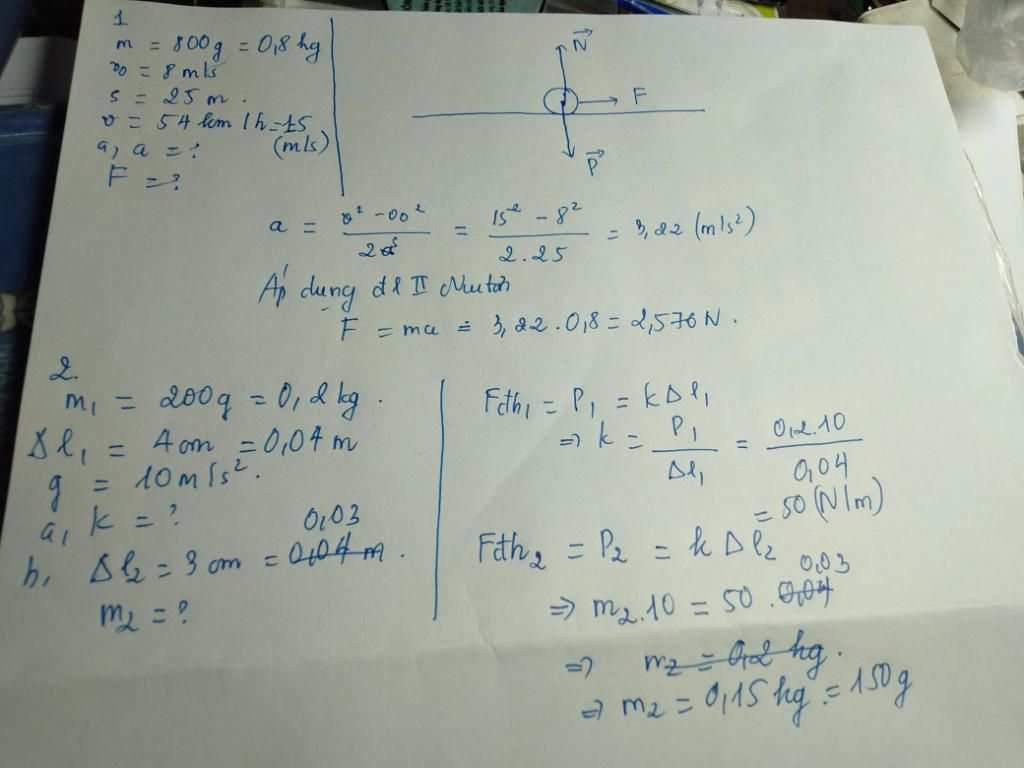 1
m = 800g = 0,8 kg
v₀ = 8 m/s
s = 25 m.
v = 54 km/h = 15
(m/s)
a, a = ?
F = ?
N⃗
F
P⃗
a = (v² - v₀²)/(2s) = (15² - 8²)/(2.25) = 3,22 (m/s²)
Áp dụng đl II Newton
F = ma = 3,22.0,8 = 2,576 N.
2.
m₁ = 200g = 0,2 kg.
Δl₁ = 4cm = 0,04 m
g = 10 m/s².
a, k = ?
b, Δl₂ = 3 cm = ~~0,04 m~~ 0,03.
m₂ = ?
Fđh₁ = P₁ = kΔl₁
⇒ k = P₁/Δl₁ = 0,2.10/0,04
= 50 (N/m)
Fđh₂ = P₂ = kΔl₂
⇒ m₂.10 = 50.~~0,04~~ 0,03
⇒ ~~m₂ = 0,2 kg.~~
⇒ m₂ = 0,15 kg = 150g